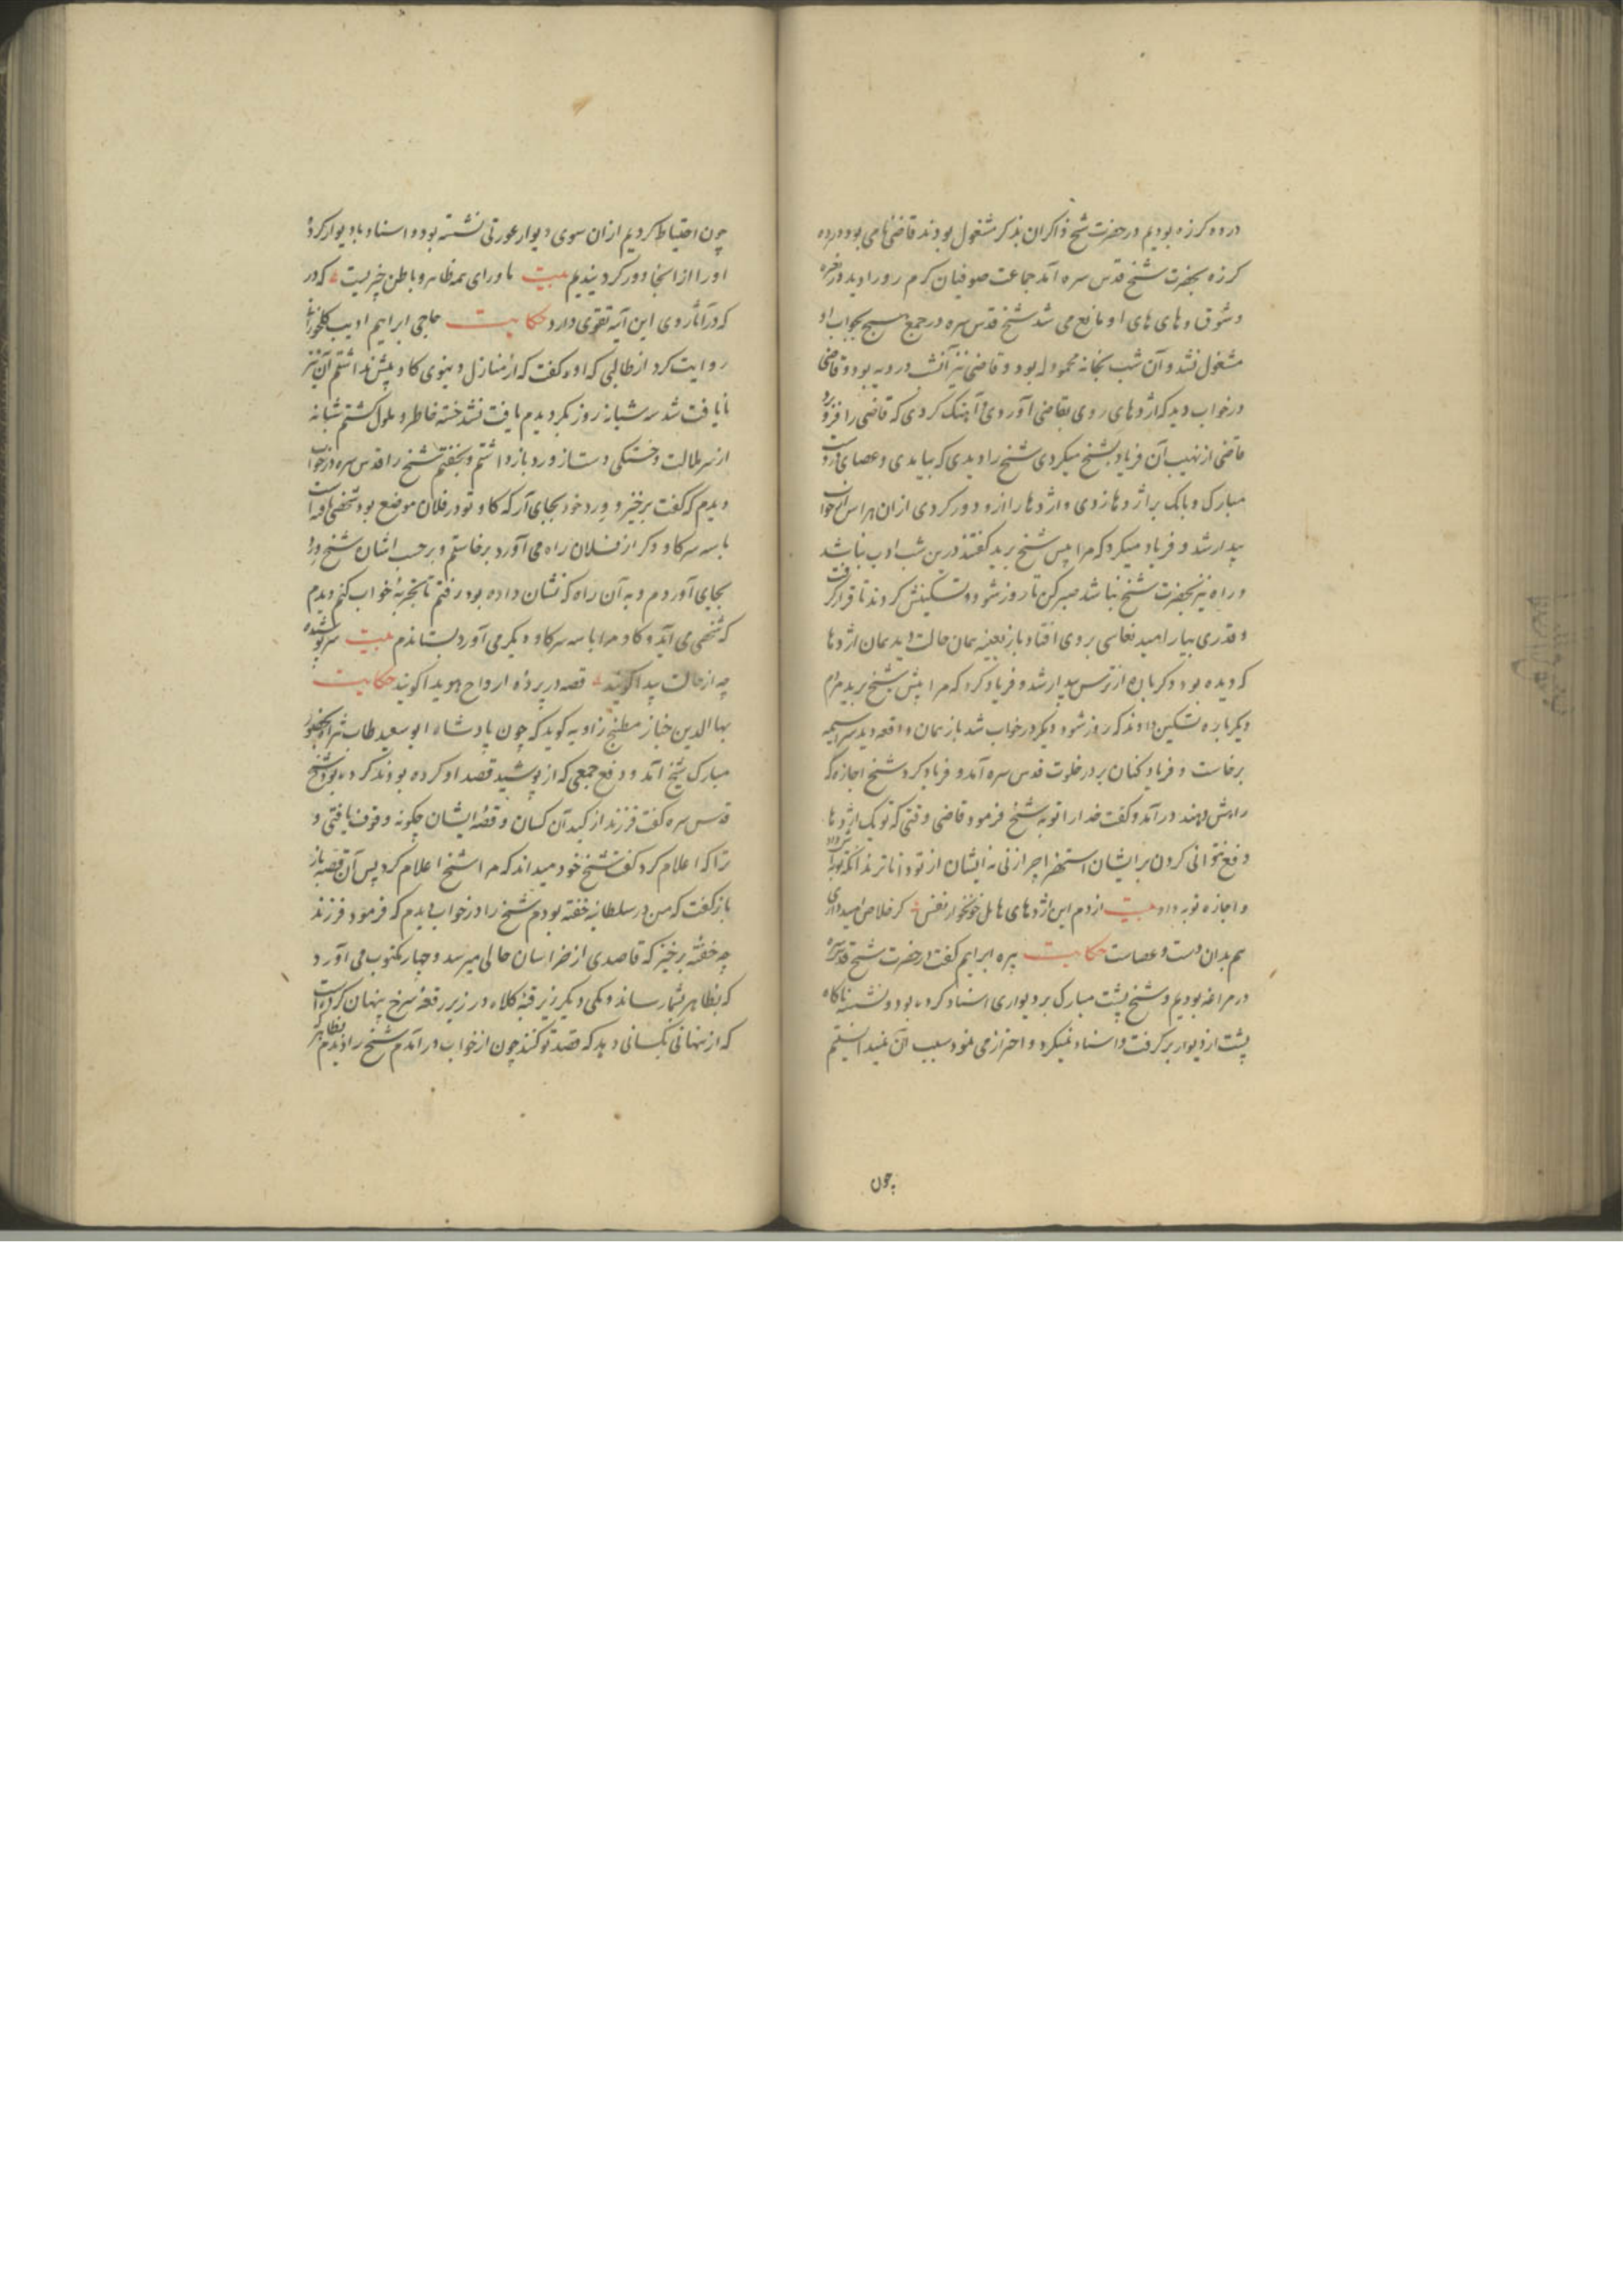 در ده کرزه بودیم در حضرت شیخ ذاکران بذکر مشغول بودند قاضئ مامی بود در ده
کرزه بحضرت شیخ قدس سره آمد جماعت صوفیان کرم رو را دید در نعره
و شوق و های های او مانع می شد شیخ قدس سره در جمع هیچ بجواب او
مشغول نشد و آن شب بخانه محمود له بود و قاضی نیز آنشب در دیه بود و قاضی
در خواب دید که اژدهای روی بقاضی آوردی و آهنک کردی که قاضی را فرو برد
قاضی از نهیب آن فریاد بشیخ میکردی شیخ را دیدی که بیامدی و عصای در دست
مبارک و بانک بر اژدها زدی و اژدها را ازو دور کردی از ان هراس از خواب
بیدار شد و فریاد میکرد که مرا پیش شیخ برید کفتند درین شب ادب نباشد
و راه نیز بحضرت شیخ نباشد صبر کن تا روز شود و تسکینش کردند تا قرار کرفت
و قدری بیارامید نعاسی بر وی افتاد باز بعینه همان حالت دید همان اژدها
که دیده بود دکر باره از ترس بیدار شد و فریاد کرد که مرا پیش شیخ برید مردم
دیکر باره تسکین دادند که روز شود دیکر در خواب شد باز همان واقعه دید سراسیمه
برخاست و فریاد کنان بر در خلوت قدس سره آمد و فریاد کرد شیخ اجازه که
راهش دهند در آمد و کفت خدا را توبه شیخ فرمود قاضی وقتی که تو یک اژدها
دفع نتوانی کردن بر ایشان استهزا چرا زنی نه ایشان از تو داناترند آنکه توبه داد
و اجازه توبه داد بیت از دم این اژدهای هایل خونخوار نفس کر خلاص امید داری
هم بدان دست و عصاست حکایت پیره ابراهیم کفت در حضرت شیخ قدس سره
در مراغه بودیم و شیخ پشت مبارک بر دیواری اسناد کرده بود و نشسته ناکاه
پشت از دیوار بر کرفت و اسناد نمیکرد و احتراز می نمود سبب آن نمیدانستیم
چون
چون احتیاط کردیم از ان سوی دیوار عورتی نشسته بود و اسناد با دیوار کرده
او را از اینجا دور کردانیدیم بیت ماورای همه ظاهر و باطن چیزیست که در
که در آثار روی این آیه تقوی دارد حکایت حاجی ابراهیم ادیب کلخورانی
روایت کرد از طالبی که او کفت که از منازل دنیوی کاو پیش نداشتم آن نیز
نایافت شد سه شبانه روز بکردیدم یافت نشد خسته خاطر و ملول کشتم شبانه
از سر ملالت و خستکی دست از ورد باز داشتم و بخفتم شیخ را قدس سره در خواب
دیدم که کفت برخیز و ورد خود بجای آر که کاو تو در فلان موضع بود شخصی یافته است
با سه سر کاو دکر از فلان راه می آورد برخاستم و بر حسب اشان شیخ ورد
بجای آوردم و به آن راه که نشان داده بود رفتم تا تجربهٔ خواب کنم دیدم
که شخصی می آید و کاو مرا با سه سر کاو دیکر می آورد بستاندم بیت سر پوشیده
چه از حالت پیدا کویند قصه در پردهٔ ارواح هویدا کویند حکایت
بها الدین خباز مطبخ زاویه کوید که چون پادشاه ابو سعید طاب ثراه بحضور
مبارک شیخ آمد و دفع جمعی که از پوشید قصد او کرده بودند کرده بود شیخ
قدس سره کفت فرزند از کید آن کسان و قصهٔ ایشان چکونه وقوف یافتی و
ترا که اعلام کرد کفت شیخ خود میداند که مرا شیخ اعلام کرد پس آن قصه باز
باز کفت که من در سلطانیه خفته بودم شیخ را در خواب دیدم که فرمود فرزند
چه خفتهٔ برخیز که قاصدی از خراسان حالی میرسد و چهار مکتوب می آورد
که بظاهر بشما رساند و یکی دیکر زیر قبهٔ کلاه در زیر رقعهٔ سرخ پنهان کرده است
که از نهانی بکسانی دهد که قصد تو کنند چون از خواب در آمدم شیخ را دیدم بظاهر که